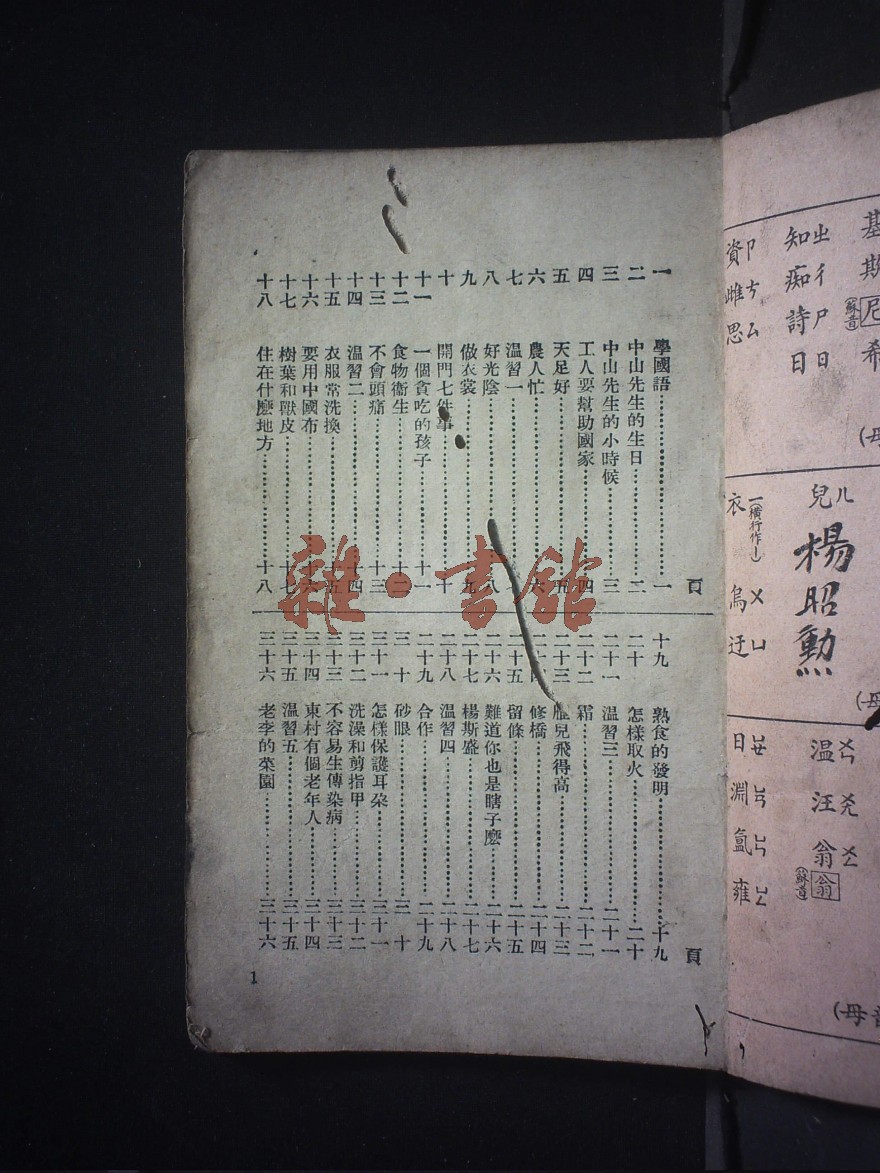 頁
一 學國語 一
二 中山先生的生日 二
三 中山先生的小時候 三
四 工人要幫助國家 四
五 天足好 五
六 農人忙 六
七 温習一
八 好光陰 八
九 做衣裳 九
十 開門七件事 十
十一 一個貪吃的孩子 十一
十二 食物衞生 十二
十三 不會頭痛 十三
十四 温習二 十四
十五 衣服常洗換 十五
十六 要用中國布 十六
十七 樹葉和獸皮 十七
十八 住在什麽地方 十八
頁
十九 熟食的發明 十九
二十 怎樣取火 二十
二十一 温習三 二十一
二十二 霜 二十二
二十三 雁兒飛得高 二十三
二十四 修橋 二十四
二十五 留條 二十五
二十六 難道你也是瞎子麽 二十六
二十七 楊斯盛 二十七
二十八 温習四 二十八
二十九 合作 二十九
三十 砂眼 三十
三十一 怎樣保護耳朵 三十一
三十二 洗澡和剪指甲 三十二
三十三 不容易生傳染病 三十三
三十四 東村有個老年人 三十四
三十五 温習五 三十五
三十六 老李的菜園 三十六
1
雜·書館
基斯尼希
(蘇音)
ㄓㄔㄕㄖ
知痴詩日
ㄗㄘㄙ
資雌思
ㄦ
兒
楊昭勳
一(橫行作丨)
衣
ㄨ ㄩ
烏 迂
ㄨㄣ ㄨㄤ ㄨㄥ
温 汪 翁 翁
(蘇音)
ㄩㄝ ㄩㄢ ㄩㄣ ㄩㄥ
曰 淵 氳 雍